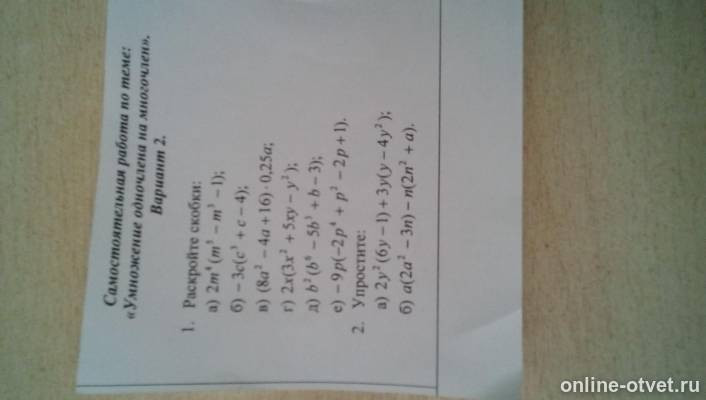 Самостоятельная работа по теме:
«Умножение одночлена на многочлен».
Вариант 2.
1. Раскройте скобки:
а) 2m⁴(m⁵ − m³ − 1);
б) −3c(c³ + c − 4);
в) (8a² − 4a + 16)·0,25a;
г) 2x(3x² + 5xy − y²);
д) b²(b⁶ − 5b³ + b − 3);
е) −9p(−2p⁴ + p² − 2p + 1).
2. Упростите:
а) 2y²(6y − 1) + 3y(y − 4y²);
б) a(2a² − 3n) − n(2n² + a).
online-otvet.ru